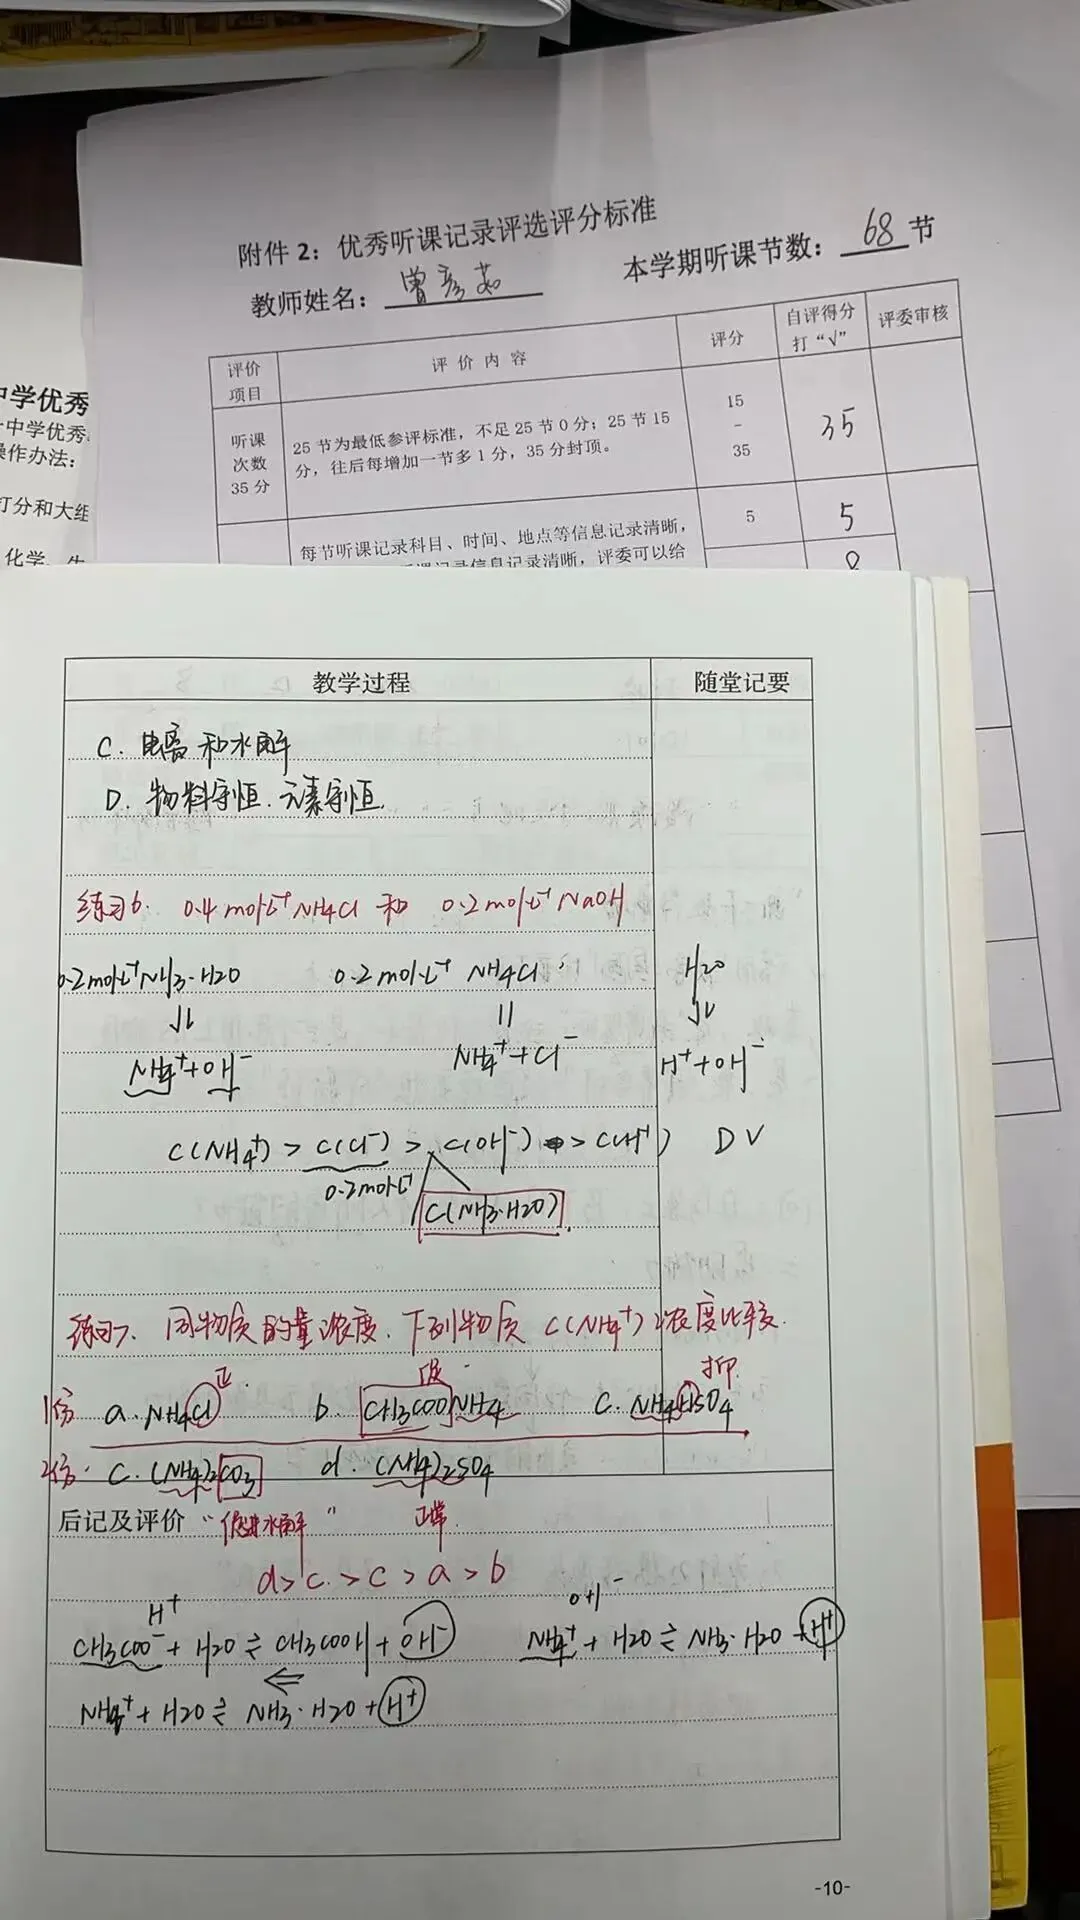 附件 2：优秀听课记录评选评分标准
教师姓名：曾彦茹 本学期听课节数：68节
评价项目 评 价 内 容 评分 自评得分打“√” 评委审核
听课次数35分 25 节为最低参评标准，不足 25 节 0 分；25 节 15 分，往后每增加一节多 1 分，35 分封顶。 15-35 35
每节听课记录科目、时间、地点等信息记录清晰， 5 5
听课记录信息记录清晰，评委可以给 8
中学优秀
中学优秀
操作办法：
打分和大组
化学、生
教学过程 随堂记要
C. 电离和水解
D. 物料守恒.元素守恒.
练习6. 0.4mol·L⁻¹NH4Cl 和 0.2mol·L⁻¹NaOH
0.2mol·L⁻¹NH3·H2O 0.2mol·L⁻¹ NH4Cl H2O
⇌ || ⇌
NH4⁺+OH⁻ NH4⁺+Cl⁻ H⁺+OH⁻
C(NH4⁺) > C(Cl⁻) > C(OH⁻) > C(H⁺) D√
0.2mol·L⁻¹ C(NH3·H2O).
练习7. 同物质的量浓度.下列物质 C(NH4⁺)浓度比较.
正. 促. 抑.
1份 a.NH4Cl b. CH3COONH4 C. NH4HSO4
2份. C.(NH4)2CO3 d.(NH4)2SO4
后记及评价 “促进水解” 正常.
d>C.>C>a>b
H⁺ OH⁻
CH3COO⁻+H2O⇌CH3COOH+OH⁻ NH4⁺+H2O⇌NH3·H2O+H⁺
⇐
NH4⁺+H2O⇌NH3·H2O+H⁺
-10-